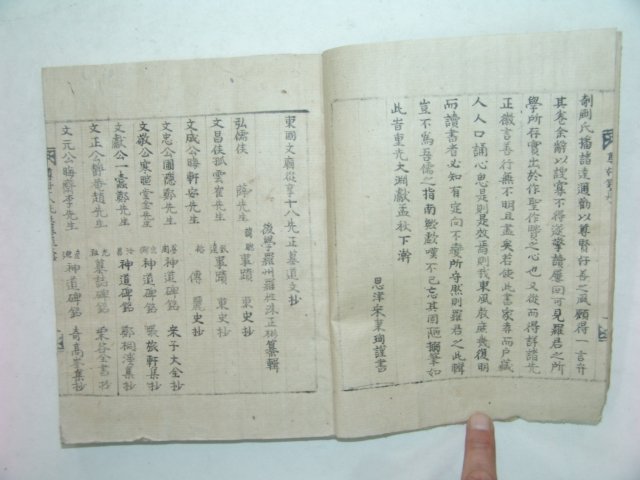 剞劂氏播諸遠邇勸以尊賢行善之風願得一言弁
其卷余辭以謏寡不得遂擎讀屢回可見羅君之所
學所存實出於作聖作賢之心也又從而得詳諸先
正微言善行無不明且盡矣若使此書家專而戶藏
人人口誦心思是則是效焉則我東風教庶幾復明
而讀書者必知有定向不變所守然則羅君之此輯
豈不為吾儒之指南然歟嘆不已忘其固陋獮筆如
此旹重光大淵獻孟秋下澣
恩津宋 謹書
東國文廟從享十八先正墓道文抄
後學羅州羅 纂輯
弘儒侯 薛先生 事蹟 東史抄
文昌侯孤雲崔先生 事蹟 東史抄
文成公晦軒安先生 傳 麗史抄
文忠公圃隱鄭先生 神道碑銘 宋子大全抄
文敬公寒暄堂金先生 神道碑銘 張旅軒集抄
文獻公一蠹鄭先生 神道碑銘 鄭桐溪集抄
文正公靜菴趙先生 墓誌碑銘 栗谷全書抄
文元公晦齋李先生 神道碑銘 奇高峯集抄